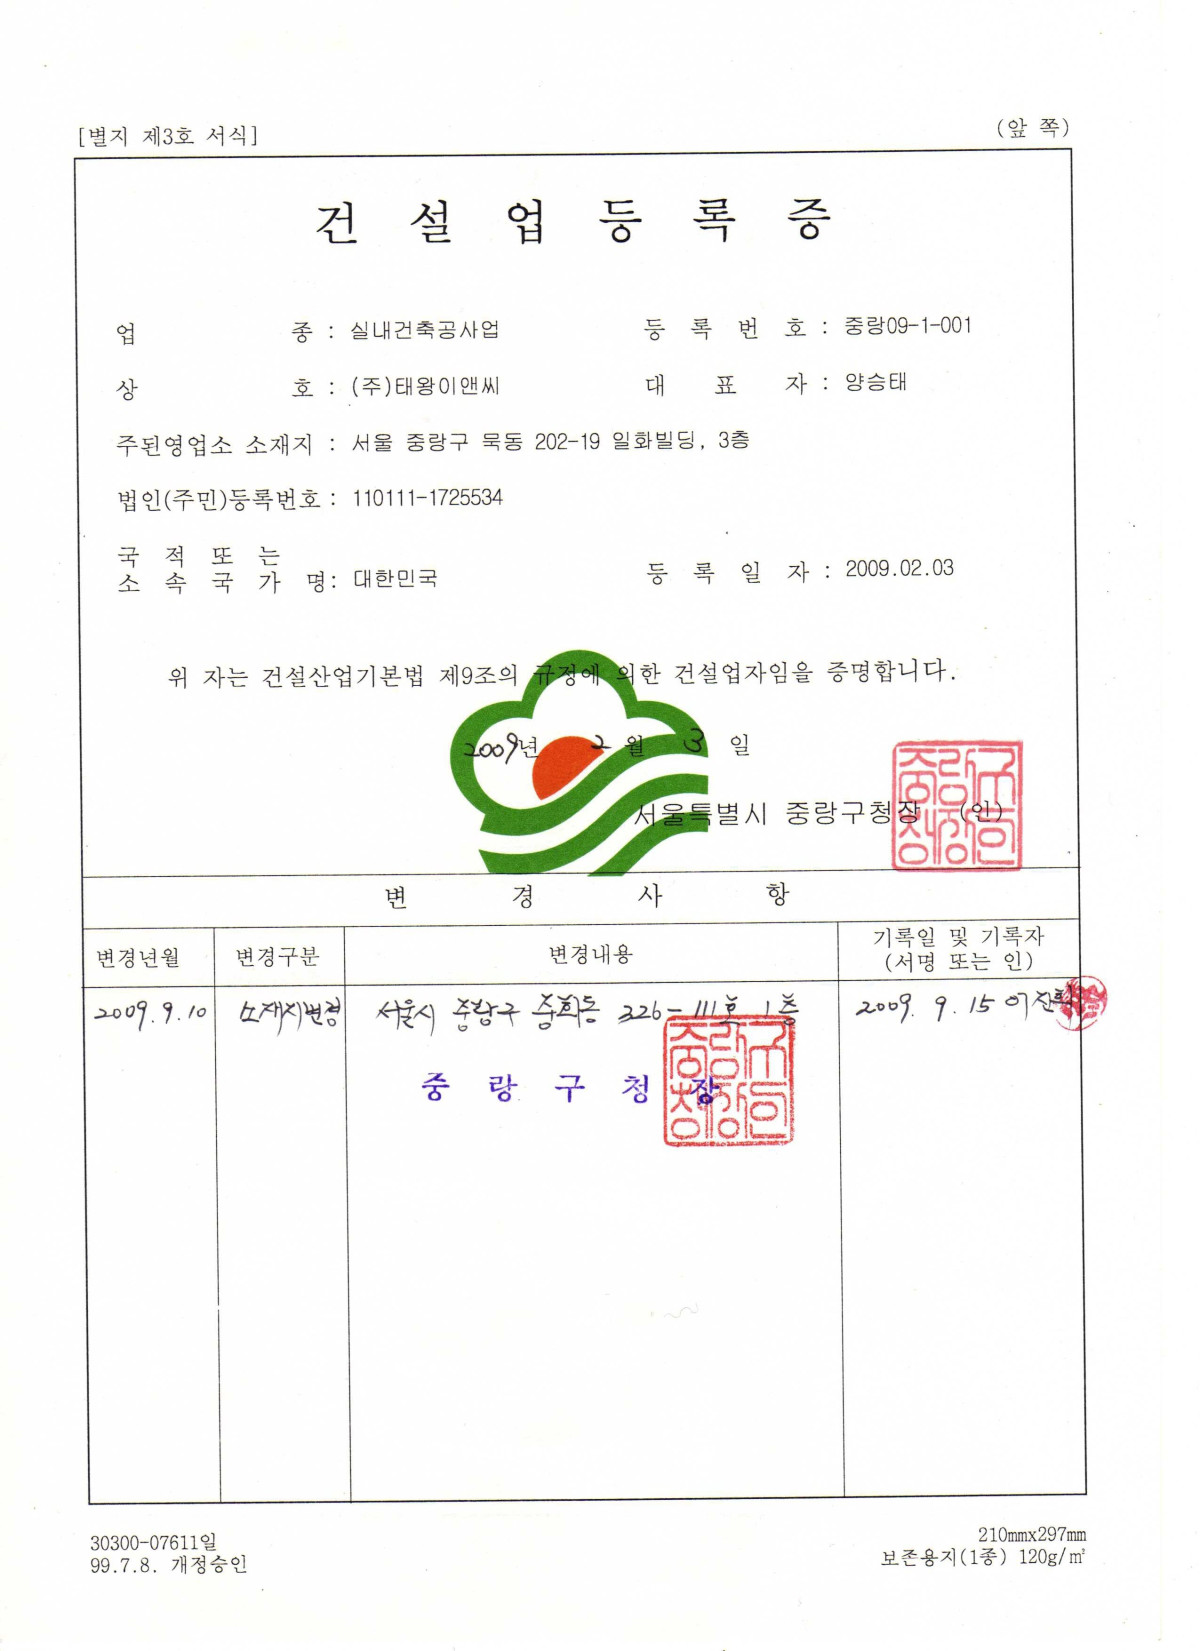 [별지 제3호 서식]
(앞 쪽)
건 설 업 등 록 증
업 종 : 실내건축공사업
등 록 번 호 : 중랑09-1-001
상 호 : (주)태왕이앤씨
대 표 자 : 양승태
주된영업소 소재지 : 서울 중랑구 묵동 202-19 일화빌딩, 3층
법인(주민)등록번호 : 110111-1725534
국 적 또 는
소 속 국 가 명 : 대한민국
등 록 일 자 : 2009.02.03
위 자는 건설산업기본법 제9조의 규정에 의한 건설업자임을 증명합니다.
2009년 2 월 3 일
서울특별시 중랑구청장 (인)
변 경 사 항
변경년월
변경구분
변경내용
기록일 및 기록자
(서명 또는 인)
2009. 9. 10
소재지변경
서울시 중랑구 중화동 326-111호 1층
2009. 9. 15
중 랑 구 청 장
30300-07611일
99.7.8. 개정승인
210mmx297mm
보존용지(1종) 120g/㎡